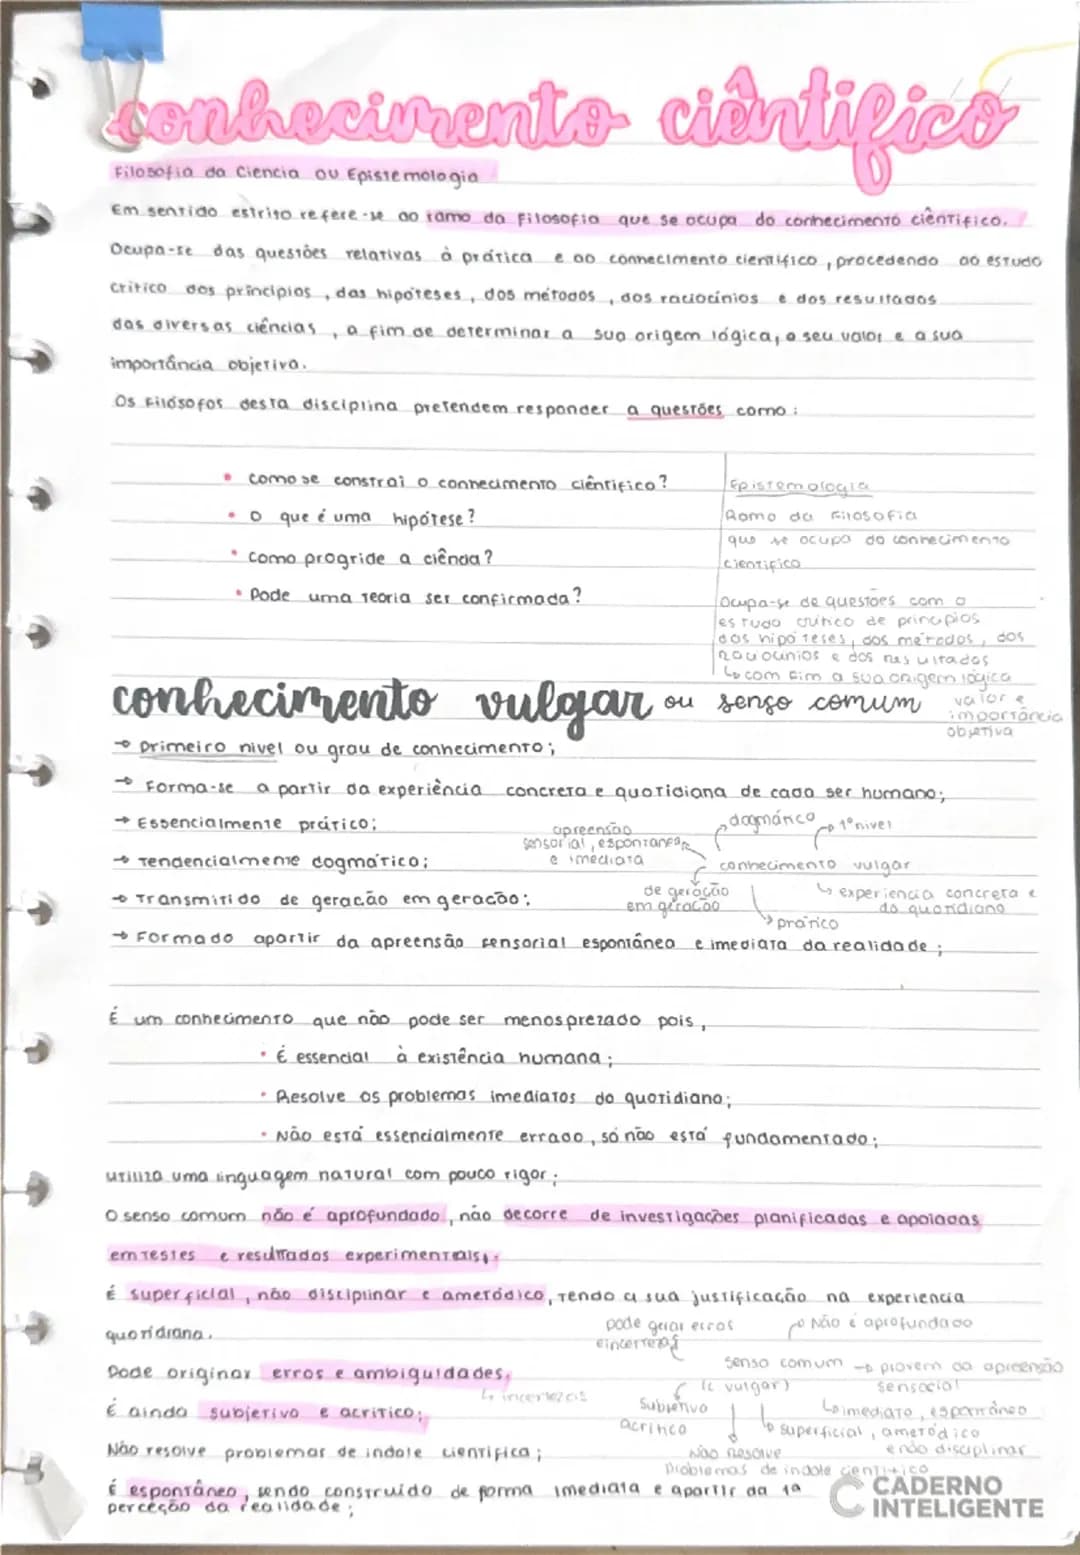 conhecimento ciêntifico
Filosofia da Ciencia ou Epistemologia
Em sentido estrito refere-se ao ramo da Filosofia que se ocupa do conhecimento ciêntifico.
Ocupa-se das questões relativas à prática e ao conhecimento cientifico, procedendo ao estudo
critico dos princípios, das hipóteses, dos métodos, dos raciocínios e dos resultados
das diversas ciências, a fim de determinar a sua origem lógica, o seu valor e a sua
importância objetiva.
Os Filósofos desta disciplina pretendem responder a questões como:
• Como se constrai o conhecimento ciêntifico?
• O que é uma hipótese?
• Como progride a ciência?
• Pode uma teoria ser confirmada?
Epistemologia
Ramo da Filosofia
que se ocupa do conhecimento
cientifico
Ocupa-se de questões com o
estudo critico de principios
dos hipóteses, dos métodos, dos
raciocinios e dos resultados
↳ com fim a sua origem lógica
valor e
importância
objetiva
conhecimento vulgar ou senso comum
→ primeiro nivel ou grau de conhecimento;
→ Forma-se a partir da experiência concreta e quotidiana de cada ser humano;
→ Essencialmente prático;
→ Tendencialmente dogmático;
→ Transmitido de geracão em geracão;
→ Formado apartir da apreensão sensorial espontâneo e imediata da realidade;
apreensão
sensorial, espontanea
e imediata
dogmático
1º nivel
conhecimento vulgar
de geração
em geração
↳ experiencia concreta e
do quotidiano
prático
É um conhecimento que não pode ser menosprezado pois,
• É essencial à existência humana;
• Resolve os problemas imediatos do quotidiano;
• Não está essencialmente errado, só não está fundamentado;
utiliza uma linguagem natural com pouco rigor;
O senso comum não é aprofundado, não decorre de investigações planificadas e apoiadas
em testes e resultados experimentais.
É superficial, não disciplinar e ametódico, tendo a sua justificação na experiencia
quotidiana.
Pode originar erros e ambiguidades,
↳ incertezas
É ainda subjetivo e acritico;
Não resolve problemas de indole cientifica;
É espontâneo, sendo construído de forma imediata e apartir da 1ª
perceção da realidade;
pode gerar erros
e incertezas
Não é aprofundado
senso comum → provem da apreensão
(c vulgar)
sensocial
Subjetivo
acritico
↳ imediato, espontâneo
superficial, ametódico
e não disciplinar
Não Resolve
problemas de indole cientifico
CADERNO
INTELIGENTE